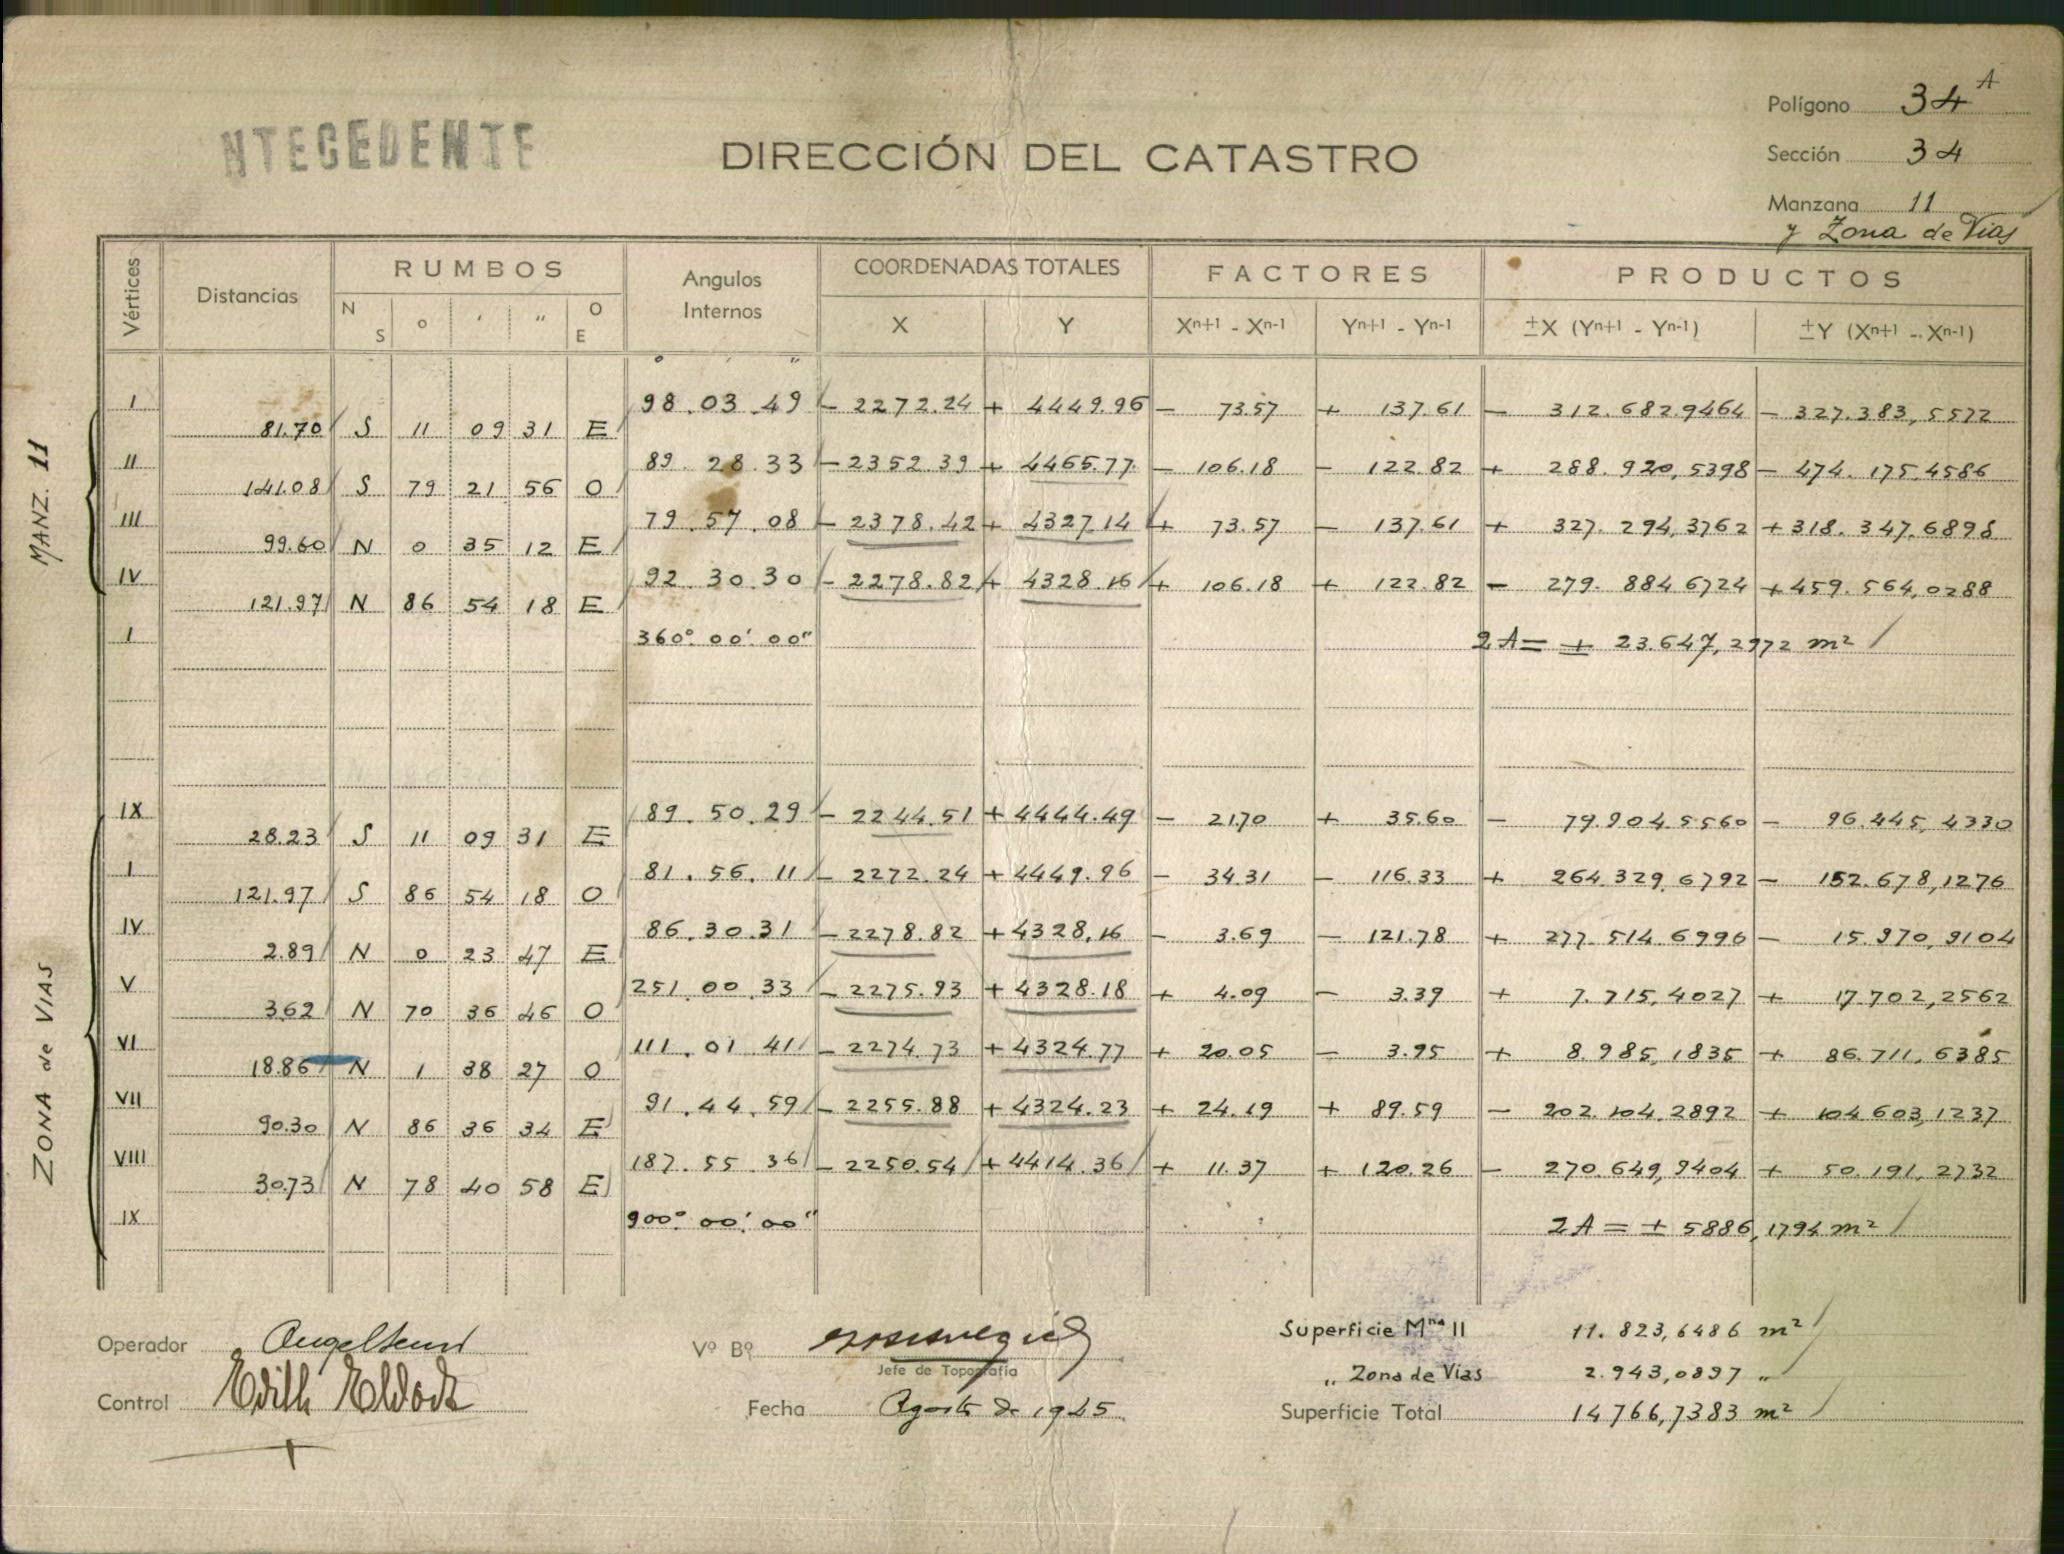 Polígono 34 A
NTECEDENTE
DIRECCIÓN DEL CATASTRO
Sección 34
Manzana 11
y Zona de Vias
Vértices Distancias RUMBOS Angulos Internos COORDENADAS TOTALES FACTORES PRODUCTOS
N S ° ' " O E X Y Xn+1 - Xn-1 Yn+1 - Yn-1 ±X (Yn+1 - Yn-1) ±Y (Xn+1 - Xn-1)
° ' "
MANZ. 11
I 98.03.49 - 2272.24 + 4449.96 - 73.57 + 137.61 - 312.682.9464 - 327.383,5572
81.70 S 11 09 31 E
II 89.28.33 - 2352.39 + 4465.77 - 106.18 - 122.82 + 288.920,5398 - 474.175.4586
141.08 S 79 21 56 O
III 79.57.08 - 2378.42 + 4327.14 + 73.57 - 137.61 + 327.294,3762 + 318.347.6898
99.60 N 0 35 12 E
IV 92.30.30 - 2278.82 + 4328.16 + 106.18 + 122.82 - 279.884.6724 + 459.564,0288
121.97 N 86 54 18 E
I 360°.00'.00" 2A = + 23.647,2972 m²
ZONA de VIAS
IX 89.50.29 - 2244.51 + 4444.49 - 21.70 + 35.60 - 79.904.5560 - 96.445,4330
28.23 S 11 09 31 E
I 81.56.11 - 2272.24 + 4449.96 - 34.31 - 116.33 + 264.329,6792 - 152.678,1276
121.97 S 86 54 18 O
IV 86.30.31 - 2278.82 + 4328,16 - 3.69 - 121.78 + 277.514.6996 - 15.970,9104
2.89 N 0 23 47 E
V 251.00.33 - 2275.93 + 4328.18 + 4.09 - 3.39 + 7.715,4027 + 17.702,2562
3.62 N 70 36 46 O
VI 111.01.41 - 2274.73 + 4324.77 + 20.05 - 3.95 + 8.985,1835 + 86.711,6385
18.86 N 1 38 27 O
VII 91.44.59 - 2255.88 + 4324.23 + 24.19 + 89.59 - 202.104.2892 + 104.603,1237
90.30 N 86 36 34 E
VIII 187.55.36 - 2250.54 + 4414.36 + 11.37 + 120.26 - 270.649,9404 + 50.191,2732
30.73 N 78 40 58 E
IX 900°.00'.00" 2A = ± 5886,1794 m²
Operador
Vº Bº
Jefe de Topografía
Superficie Mna 11 11.823,6486 m²
" Zona de Vias 2.943,0897 "
Control Edith
Fecha Agosto de 1945
Superficie Total 14766,7383 m²